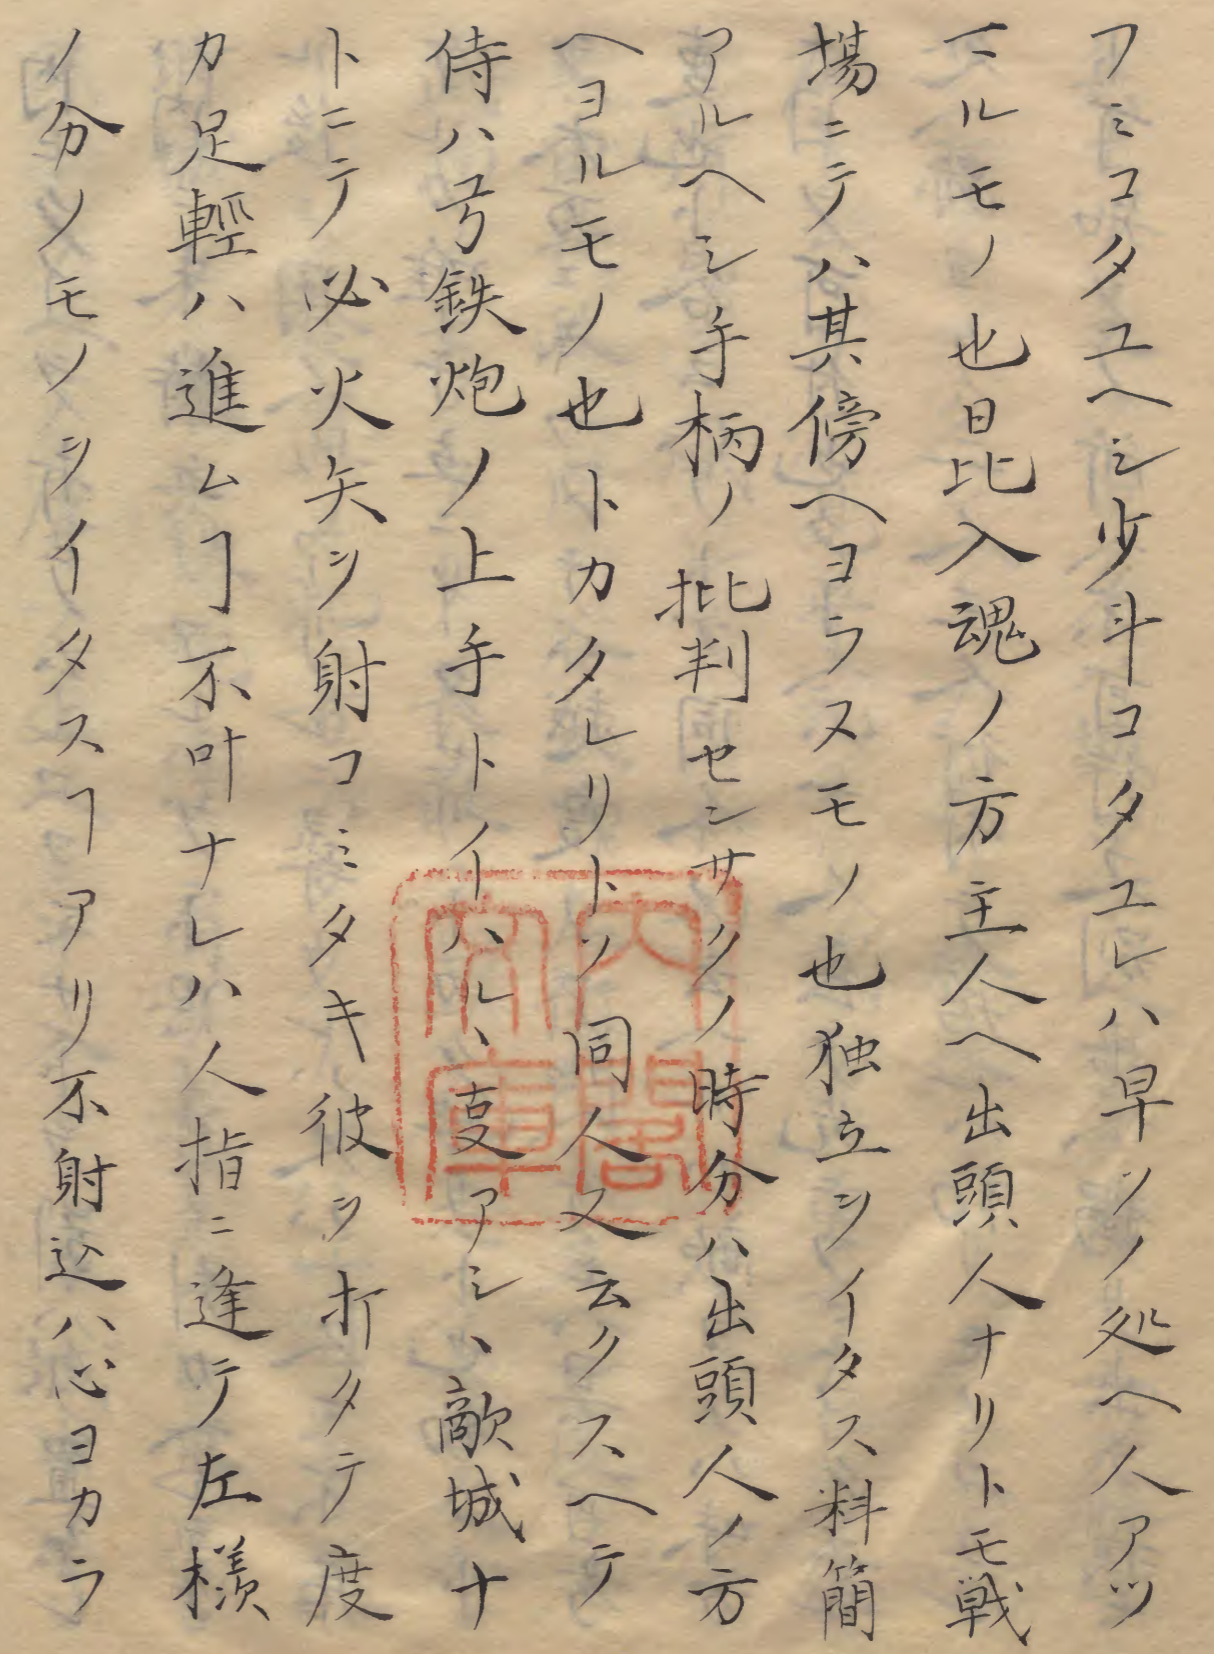 フミコタユヘシ少斗コタユレハ早ソノ処ヘ人アツ
マルモノ也日比入魂ノ方主人ヘ出頭人ナリトモ戦
場ニテハ其傍ヘヨラヌモノ也独立ヲイタス料簡
アルヘシ手柄ノ批判センサクノ時分ハ出頭人ノ方
ヘヨルモノ也トカタレリトソ同人又云クスヘテ
侍ハ弓鉄炮ノ上手トイハルヽ事アシヽ敵城ナ
トニテ必火矢ヲ射コミタキ彼ヲ打タテ度
カ足輕ハ進ムヿ不叶ナレハ人指ニ逢テ左様
ノ分ノモノヲイタスヿアリ不射込ハ心ヨカラ
内閣
文庫